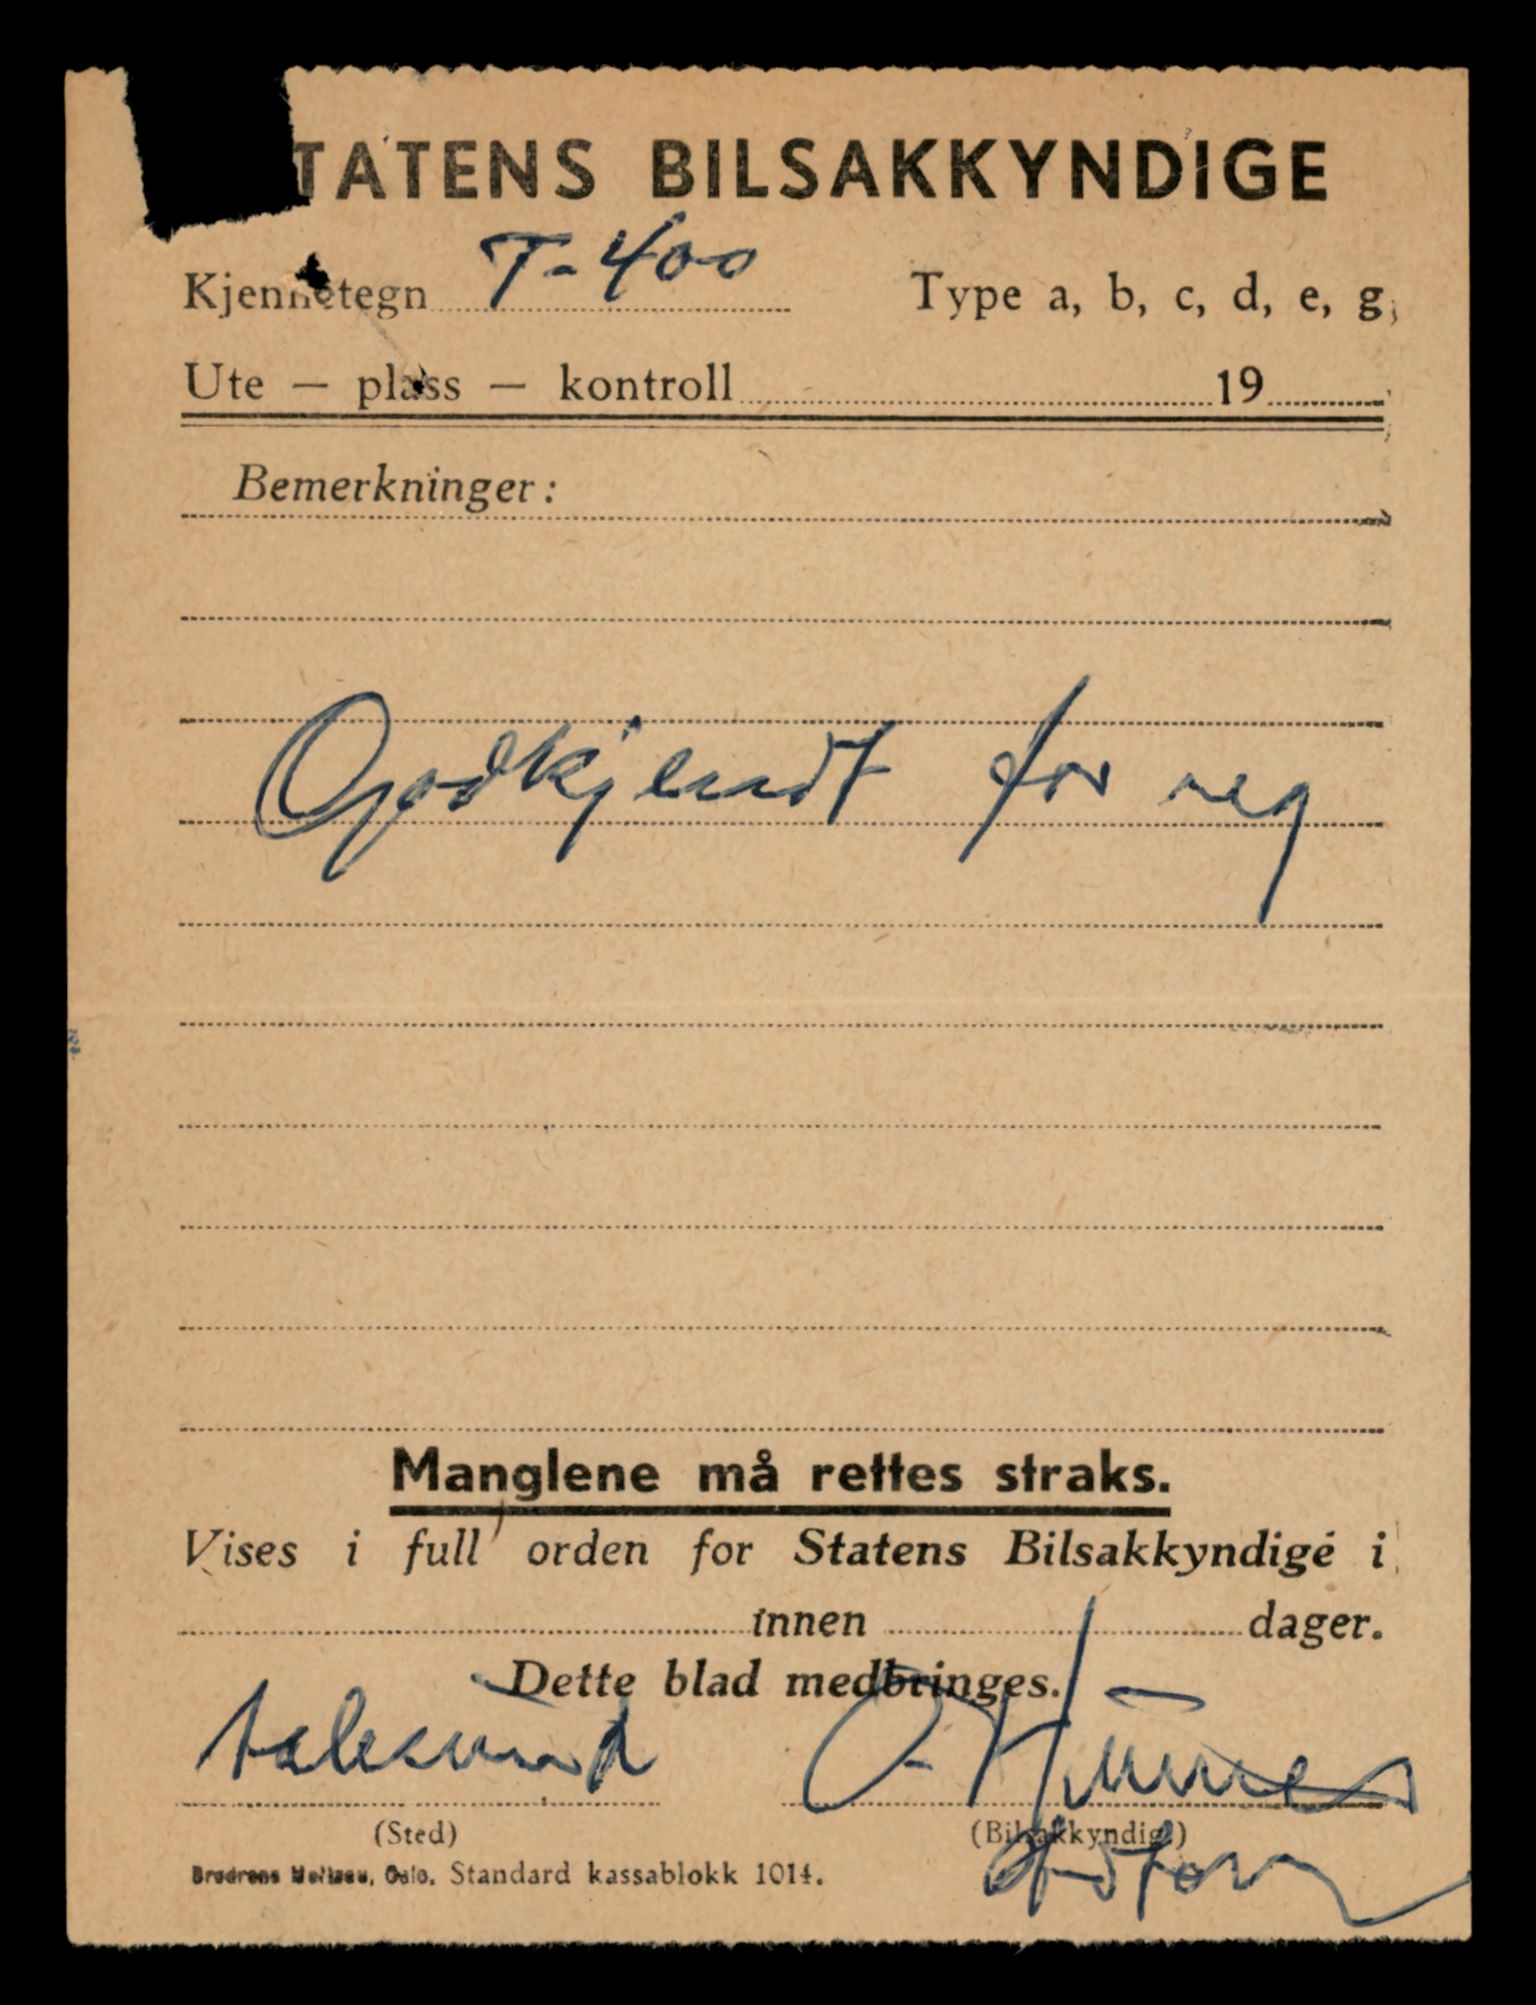 TATENS BILSAKKYNDIGE
Kjennetegn T-400 Type a, b, c, d, e, g,
Ute — plass — kontroll 19
Bemerkninger:
Godkjendt for reg
Manglene må rettes straks.
Vises i full orden for Statens Bilsakkyndige i
innen dager.
Dette blad medbringes.
Aalesund
(Sted) (Bilsakkyndig)
Brødrene Meltzau, Oslo. Standard kassablokk 1014.